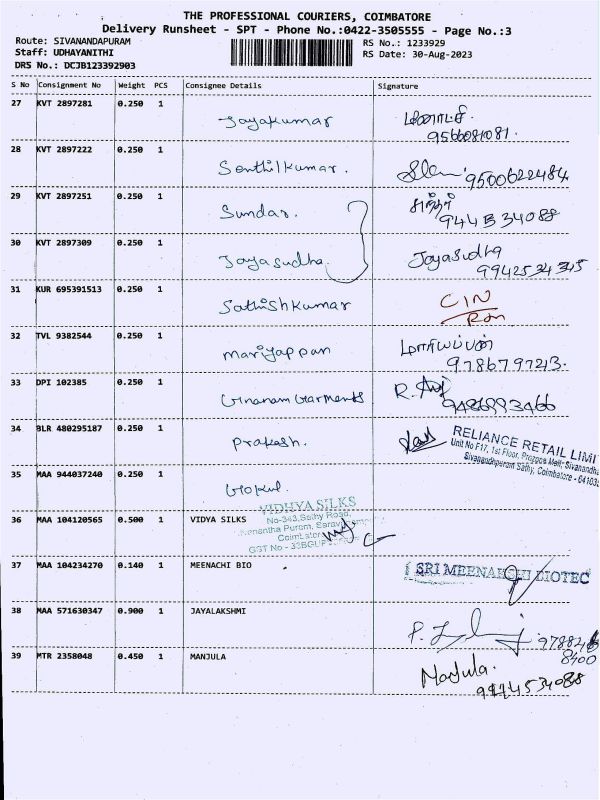 THE PROFESSIONAL COURIERS, COIMBATORE
Delivery Runsheet - SPT - Phone No.:0422-3505555 - Page No.:3
Route: SIVANANDAPURAM RS No.: 1233929
Staff: UDHAYANITHI RS Date: 30-Aug-2023
DRS No.: DCJB123392903
S No Consignment No Weight PCS Consignee Details Signature
27 KVT 2897281 0.250 1 Jayakumar மீனாட்சி
9566081081.
28 KVT 2897222 0.250 1 Senthilkumar. 9500622484
29 KVT 2897251 0.250 1 Sundar. சுந்தர்
944 34088
30 KVT 2897309 0.250 1 Jayasudha. Jayasudha
99425 34 345
31 KUR 695391513 0.250 1 Sathishkumar CIN
32 TVL 9382544 0.250 1 Mariyappan மாரியப்பன்
9786797243.
33 DPI 102385 0.250 1 Gnanam Garments R.
34 BLR 480295187 0.250 1 Prakash. RELIANCE RETAIL LIMI
Unit No F17, 1st Floor, Prozone Mall, Sivanandha
Sivanandhapuram Sathy, Coimbatore - 64103
35 MAA 944037240 0.250 1 Gokul.
VIDHYA SILKS
No-343, Sathy Road,
Coimbator
GST No - 33BGU
36 MAA 104120565 0.500 1 VIDYA SILKS
37 MAA 104234270 0.140 1 MEENACHI BIO SRI MEENAKSHI BIOTEC
38 MAA 571630347 0.900 1 JAYALAKSHMI P.
8400
39 MTR 2358048 0.450 1 MANJULA Manjula.
534088